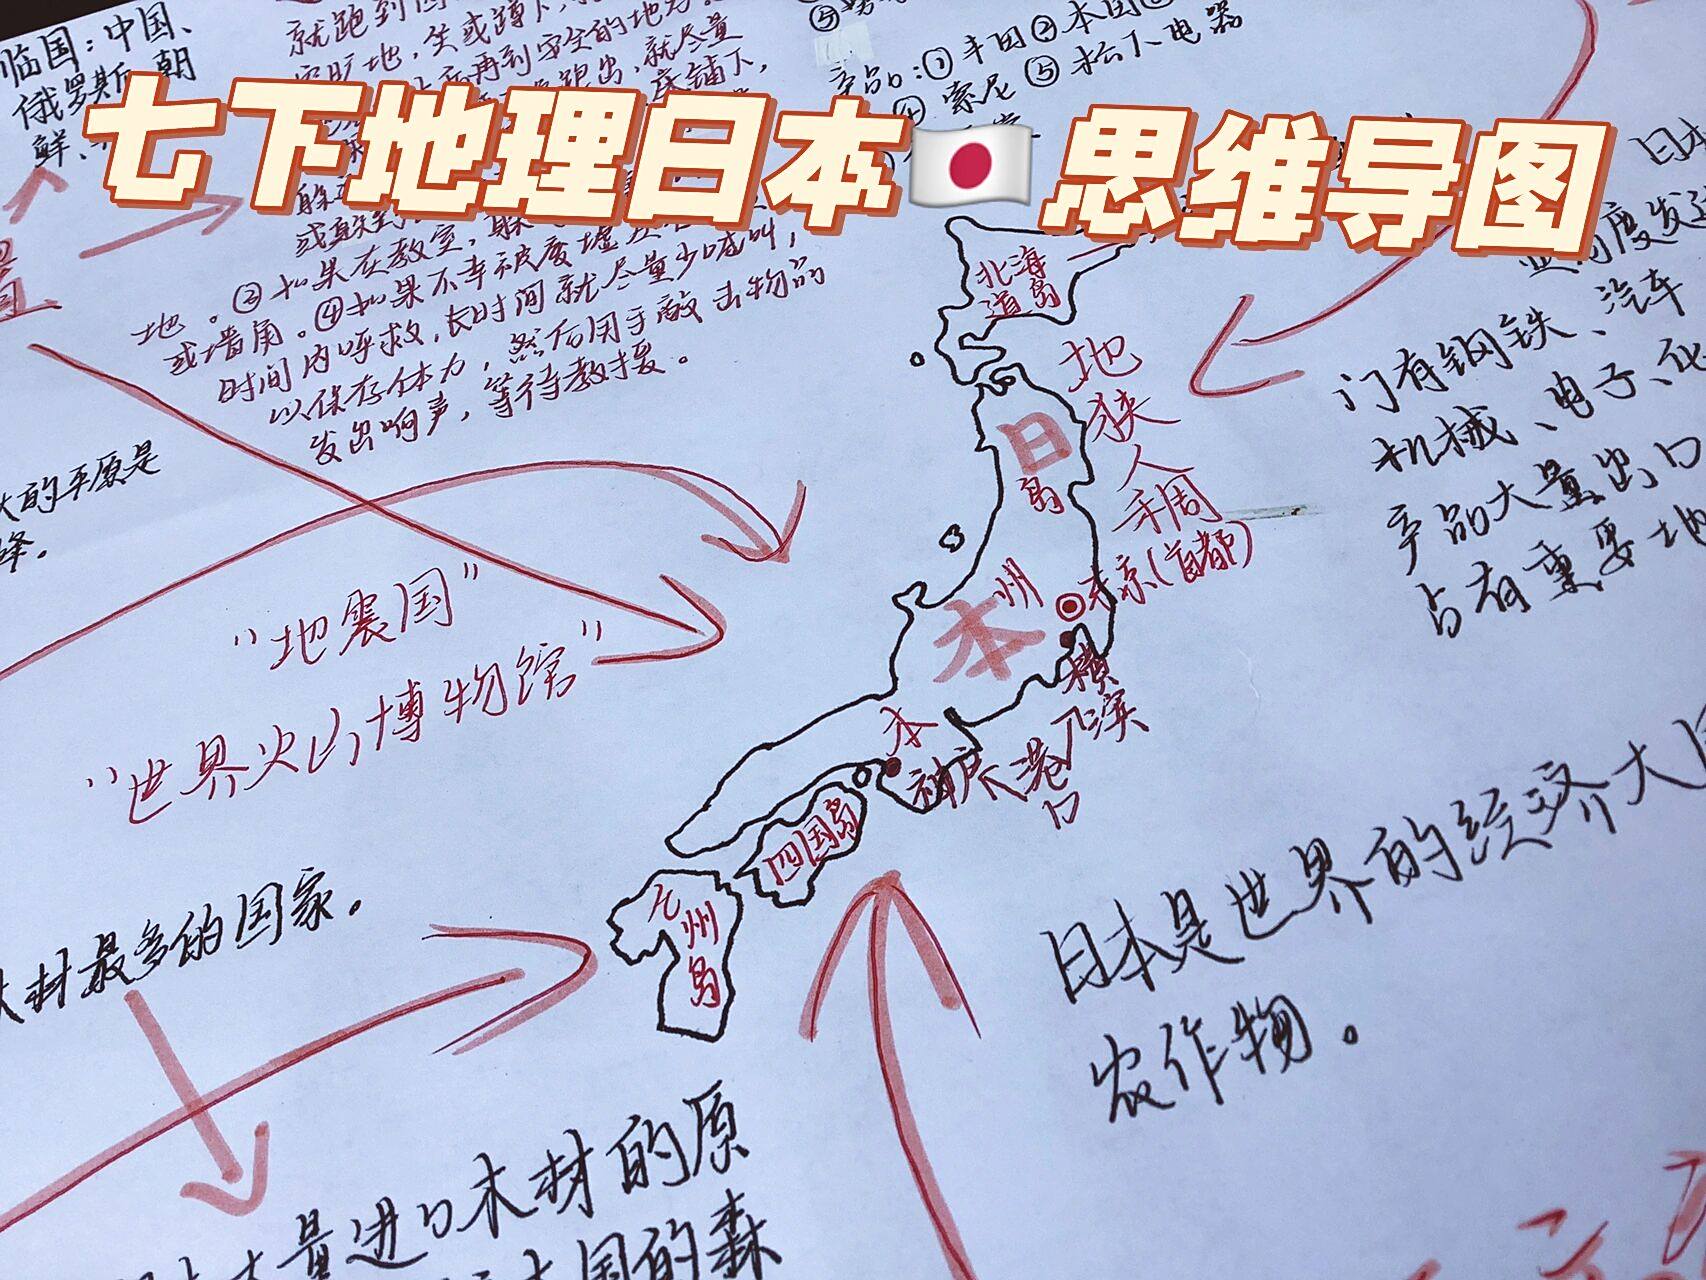 七下地理日本🇯🇵思维导图
临国：中国、
俄罗斯、朝
鲜、
就跑到
空旷地，坐或蹲下，
再到安全的地方。
就尽量
产品：①丰田②本田
④索尼⑤松下电器
地。③如果在教室，躲
或墙角。④如果不幸被废墟
时间内呼救，长时间就尽量少喊叫，
以保存体力，然后用手敲击物的
发出响声，等待救援。
大的平原是
峰。
"地震国"
"世界火山博物馆"
木材最多的国家。
量进口木材的原
国的森
北海
道岛
地
狭
人
稠
日
本
本
州
岛
东京(首都)
横
滨
神户
港
口
四国岛
九
州
岛
日本
业高度发达
门有钢铁、汽车
机械、电子、化
产品大量出口
占有重要地
日本是世界的经济大国
农作物。